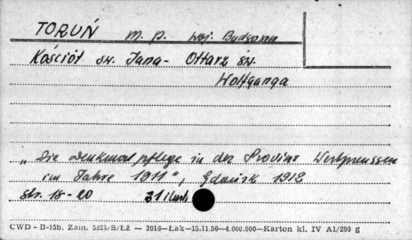 TORUŃ m. p. woj. Bydgoszcz
Kościół św. Jana - Ołtarz św.
Wolfganga
„Die Denkmalpflege in der Provinz Westpreussen
im Jahre 1911", Gdańsk 1912
str. 18-20 31 ilustr.
CWD - B-15b. Zam. 5423/S/ŁŻ — 3016—Łak—15.11.56—4.000.000—Karton kl. IV A1/200 g